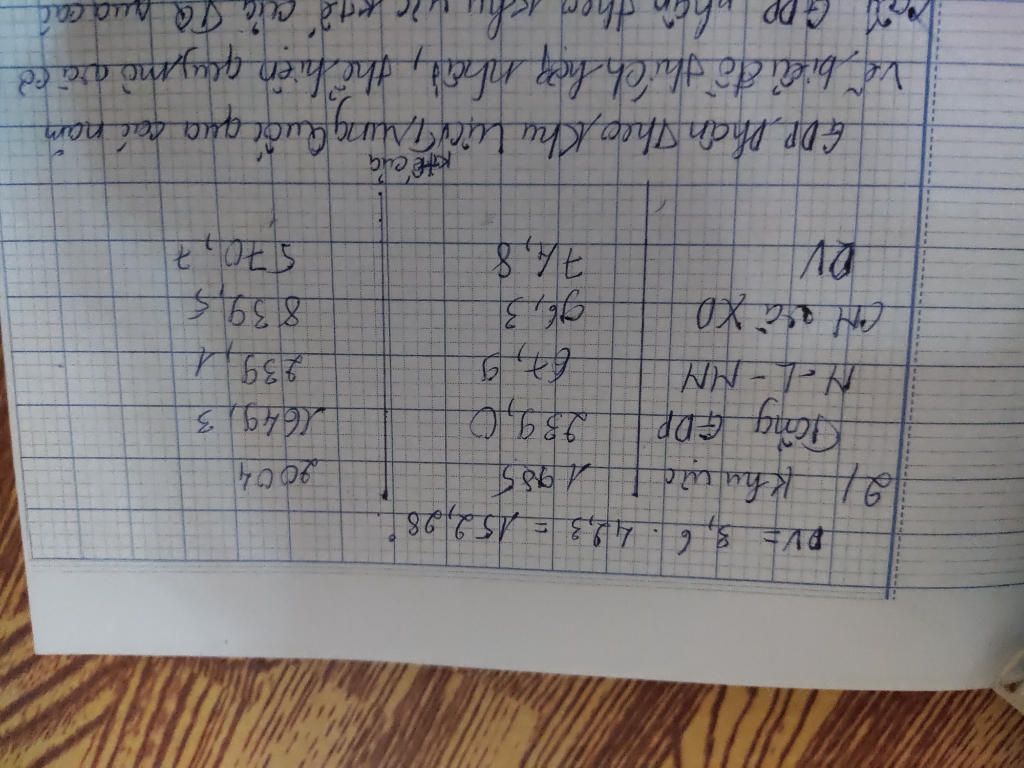 DV = 3,6 . 42,3 = 152,28°
2/ Khu vực 1985 2004
Tổng GDP 239,0 1649,3
N-L-NN 67,9 239,1
CN và XD 96,3 839,5
DV 74,8 570,7
ktế của
GDP phân theo khu vực Trung Quốc qua các năm
Vẽ biểu đồ thích hợp nhất, thể hiện quy mô và cơ
cấu GDP phân theo khu vực ktế của TQ qua các